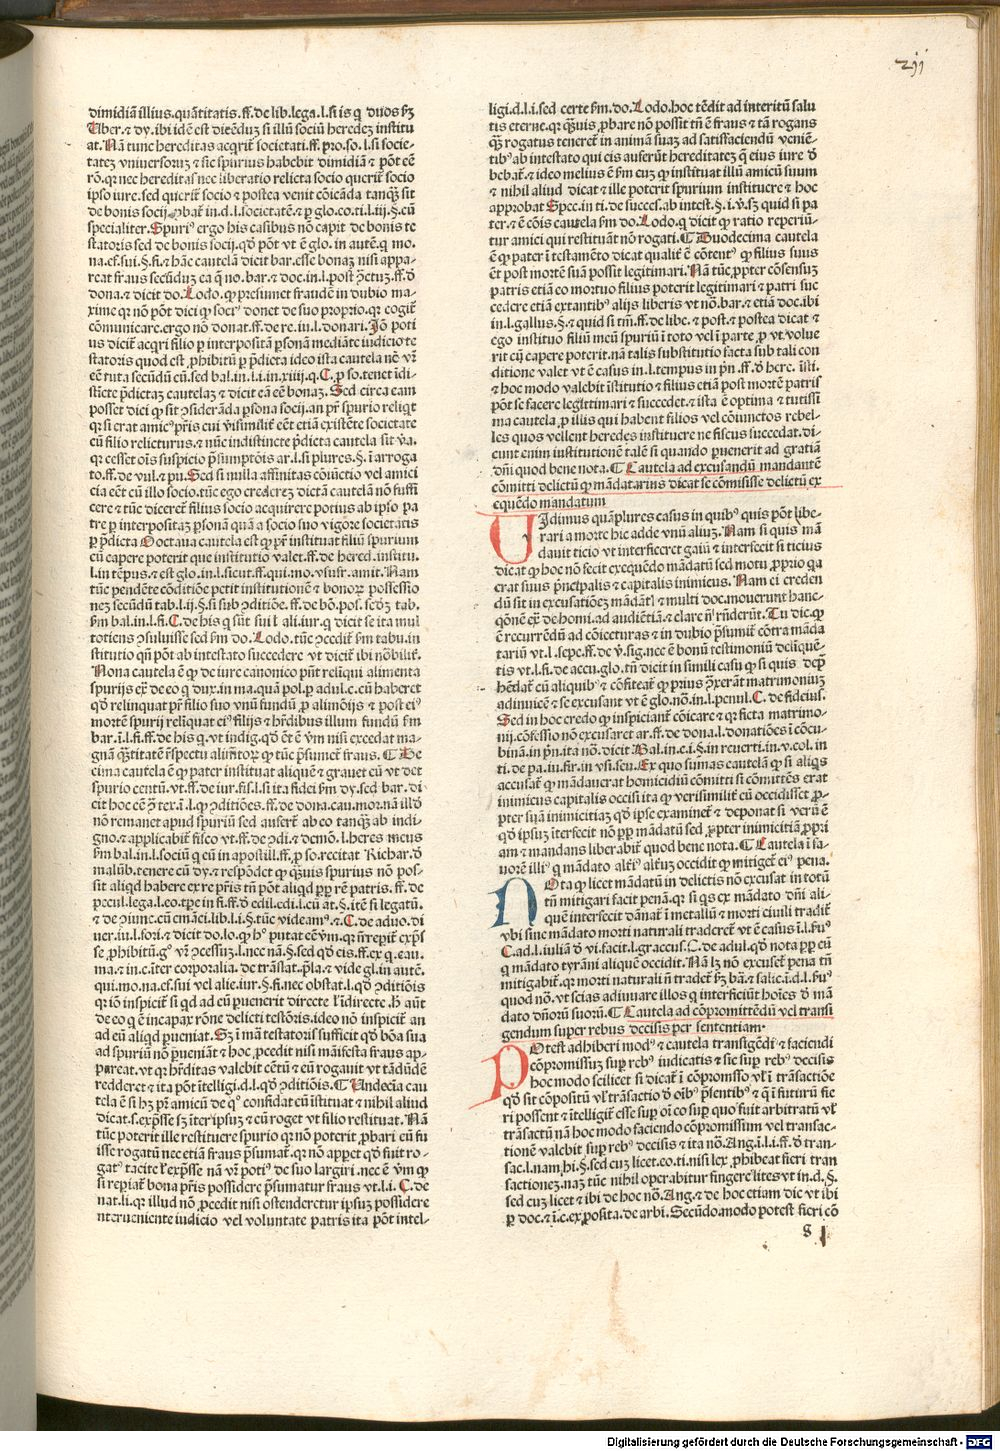 dimidiā illius.quātitatis.ff.de lib.lega.l.si is q̄ duos ẜꝫ
Vber.⁊ dy.ibi idē est diēduꝫ si illū sociū heredeꝫ institu
at.Nā tunc hereditas acqrit̄ societati.ff.pro.so.l.si socie-
tateꝫ vniuersoruꝫ ⁊ sic spurius habebit dimidiā ⁊ pōt eē
rō.qꝛ nec hereditas nec liberatio relicta socio querit̄ socio
ipso iure.sed querit̄ socio ⁊ postea venit cōicāda tanqꝫ sit
de bonis socij
specialiter.Spuriꝰ ergo his casibus nō capit de bonis te
statoris sed de bonis socij.qđ pōt vt ē glo. in autē.q̄ mo.
na.ef.sui.§.fi.⁊ hāc cautelā dicit bar.esse bonaꝫ nisi appa-
reat fraus secūduꝫ ea q̄ no.bar.⁊ doc.in.l.post
dona.⁊ dicit do.Lodo.ꝙ presumet̄ fraudē in dubio ma-
xime qꝛ nō pōt dici ꝙ sociꝰ donet de suo proprio.qꝛ cogit̄
cōmunicare.ergo nō donat.ff.de re.iu.l.donari.Jō poti
us dicit̄ acqri filio p interpositā psonā mediāte iudicio te
statoris quod est ꝓhibitū p p̄dicta ideo ista cautela nō vr̄
eē tuta secūdū eū.sed bal.in.l.i.in.xiiij.q.C.p so.tenet īdi-
stīcte p̄dictaꝫ cautelaꝫ ⁊ dicit eā eē bonaꝫ.Sed circa eam
posset dici ꝙ sit ꝯsiderāda psona socij.an pr̄ spurio reliqt
qꝛ si erat amicꝰ pris cui v̄isimilit̄ eēt etiā existēte societate
cū filio relicturus.⁊ nūc indistincte p̄dicta cautela sit va.
qꝛ cesset oīs suspicio p̄sumptōis ar.l.si plures.§.ī arroga
to.ff.de vul.⁊ pu.Sed si nulla affinitas cōiūctio vel amici
cia eēt cū illo socio.tūc ego credereꝫ dictā cautelā nō suffi
cere ⁊ tūc diceret̄ filius socio acquirere potius ab ipso pa
tre p interpositaꝫ psonā quā a socio suo vigore societatis
ꝑ p̄dicta Octaua cautela est ꝙ pr̄ instituat filiū spurium
cū capere poterit que institutio valet.ff.de hered.institu.
l.in tēpus.⁊ est glo.in.l.sicut.ff.qui.mo.vsufr.amit.Nam
tūc pendēte cōditiōe petit institutionē ⁊ bonoꝝ possessio
neꝫ secūdū tab.l.ij.§.si sub ꝯditiōe.ff.de bō.pos.secꝫ tab.
ẜm bal.in.l.fi.C.de his q̄ sūt sui l ali.iur.q̄ dicit se ita mul
totiens ꝯsuluisse sed ẜm do.Lodo.tūc ꝯcedit̄ ẜm tabu.in
stitutio qn̄ pōt ab intestato succedere vt dicit̄ ibi nōbilit̄.
Nona cautela ē ꝙ de iure canonico pn̄t relīqui alimenta
spurijs ex̄ de eo q̄ dux.in ma.quā pol.p adul.c.cū haberet
qđ relinquat pr̄ filio suo vnū fundū p alimōijs ⁊ post eiꝰ
mortē spurij relīquat eiꝰ filijs ⁊ hrdibus illum fundū ẜm
bar.ī.l.fi.ff.de his q̄.vt indig.qđ ēt ē vm nisi excedat ma-
gnā qtitatē r̄spectu alimētoꝝ ꝙ tūc p̄sumet̄ fraus.¶ De
cima cautela ē ꝙ pater instituat aliquē ⁊ grauet eū vt det
spurio centū.vt.ff.de iur.fis.l.si ita fidei ẜm dy.sed bar.di
cit hoc eē
nō remanet apud spuriū sed aufert̄ ab eo tanqꝫ ab indi-
gno.⁊ applicabit̄ fisco vt.ff.de ꝯdi.⁊ demō.l.heres meus
ẜm bal.in.l.sociū q̄ eū in apostill.ff.p so.recitat Richar.đ
malūb.tenere cū dy.⁊ respōdet ꝙ qꝫuis spurius nō pos-
sit aliqđ habere ex re pris tn̄ pōt aliqđ ꝓp rē patris.ff.de
pecul.lega.l.eo.tꝑe in fi.ff.đ edil.edi.l.cū at.§.itē si legatū.
⁊ de ꝯiunc.cū emāci.lib.l.i.§.tūc videamꝰ.⁊.C.de aduo.di
uer.iu.l.fori.⁊ dicit do.lo.ꝙ hꝰ putat eē vm.qꝛ
se ꝓhibitū.
ma.⁊ in.c.īter corporalia.de trāslat.pla.⁊ vide gl.in autē.
qui.mo.na.ef.sui vel alie.iur.§.fi.nec obstat.l.qđ ꝯditiōis
qꝛ iō inspicit̄ si qđ ad eū puenerit directe l īdirecte.
de eo q̄ ē incapax rōne delicti testōris.ideo nō inspicit̄ an
ad eū aliqđ pueniat.Sꝫ ī mā testatoris sufficit qđ bōa sua
ad spuriū nō pueniāt ⁊ hoc ꝓcedit nisi māifesta fraus ap-
pareat.vt qꝛ hrditas valebit cētū ⁊ eū rogauit vt tādūdē
redderet ⁊ ita pōt ītelligi.d.l.qđ ꝯditiōis.¶ Vndecīa cau
tela ē si hꝫ pr̄ amicū de qꝰ confidat eū īstituat ⁊ nihil aliud
dicat.s.expsse sꝫ īter ipsuꝫ ⁊ eū roget vt filio restituat.Nā
tūc poterit ille restituere spurio qꝛ nō poterit ꝓbari eū fu
isse rogatū nec etiā fraus p̄sumat̄.qꝛ nō appet qđ fuit ro-
gatꝰ tacite l expsse nā vr̄ potiꝰ de suo largiri.nec ē vm ꝙ
si repiat̄ bona pris possidere p̄sumatur fraus vt.l.i.C.de
nat.li.qꝛ illud nō ꝓcedit nisi ostenderetur ipsuꝫ possidere
nterueniente iudicio vel voluntate patris ita pōt intel-
ligi.d.l.i.sed certe ẜm.do.Lodo.hoc tēdit ad interitū salu
tis eterne.qꝛ qꝫuis ꝓbare nō possit tn̄ ē fraus ⁊ tā rogans
qꝫ rogatus teneret̄ in animā suaꝫ ad satisfaciendū veniē-
tibꝰ ab intestato qui eis auferūt hereditateꝫ q̄ eius iure đ
bebat̄.⁊ ideo melius ē ẜm euꝫ ꝙ instituat illū amicū suum
⁊ nihil aliud dicat ⁊ ille poterit spurium instituere ⁊ hoc
approbat Spec.in ti.de succes.ab intest.§.i.v.sꝫ quid si pa
ter.⁊ ē cōis cautela ẜm do.Lodo.q̄ dicit ꝙ ratio reperiū-
tur amici qui restituāt nō rogati.¶ Duodecima cautela
ē ꝙ pater ī testamēto dicat qualit̄ ē cōtentꝰ ꝙ filius suus
ēt post mortē suā possit legitimari.Nā tūc ꝓpter cōsensuꝫ
patris etiā eo mortuo filius poterit legitimari ⁊ patri suc
cedere etiā extantibꝰ alijs liberis vt nō.bar.⁊ etiā doc.ibi
in.l.gallus.§.⁊ quid si tm̄.ff.de libe.⁊ post.⁊ postea dicat ⁊
ego instituo filiū meū spuriū ī toto vel ī parte ꝓ vt volue
rit cū capere poterit.nā talis substitutio facta sub tali con
ditione valet vt ē casus in.l.tempus in pn̄.ff.đ here.īsti.
⁊ hoc modo valebit īstitutio ⁊ filius etiā post mortē patris
pōt se facere legittimari ⁊ succedet.⁊ ista ē optima ⁊ tutissi
ma cautela ꝓ illis qui habent filios vel cōiunctos rebel-
les quos vellent heredes instituere ne fiscus succedat.di-
cunt enim institutionē talē si quando puenerit ad gratiā
dn̄i quod bene nota.¶ Cautela ad excusandū mandantē
cōmitti delictū ꝙ mādatarius dicat se cōmisisse delictū ex
equēdo mandatum
VJdimus quāplures casus in quibꝰ quis pōt libe-
rari a morte hic adde vnū aliuꝫ.Nam si quis mā
dauit ticio vt interficeret gaiū ⁊ interfecit si ticius
dicat ꝙ hoc nō fecit exequēdo mādatū sed motu ꝓprio qa
erat suus prīcipalis ⁊ capitalis inimicus.Nam ei creden
dū sit in excusatiōeꝫ mādātl ⁊ multi doc.mouerunt hanc
qōnē ex̄ de homi.ad audiētiā.⁊ clare nl rn̄derūt.Tu dic ꝙ
ē recurrēdū ad cōiecturas ⁊ in dubio p̄sumit̄ cōtra māda
tariū vt.l.sepe.ff.de v.sig.nec ē bonū testimoniū deliquē-
tis vt.l.fi.de accu.glo.tn̄ dicit in simili casu ꝙ si quis
hēdat̄ cū aliquibꝰ ⁊ cōfiteat̄ ꝙ prius ꝯxerāt matrimoniuꝫ
adiuicē ⁊ se excusant vt ē glo.nō.in.l.penul.C.de fideius.
Sed in hoc credo ꝙ inspiciant̄ cōicare ⁊ qꝛ ficta matrimo-
nij.cōfessio nō excusaret ar.ff.de dona.l.donatiōes ī cōcu-
binā.in pn̄.ita nō.dicit Bal.in.c.i.§.in reuerti.in.v.col.in
ti.de pa.iu.fir.in vsi.feu.Ex quo sumas cautelā ꝙ si aliqs
accusat̄ ꝙ māduerat homicidiū cōmitti si cōmittēs erat
inimicus capitalis occisi ita ꝙ verisimilit̄ eū occidisset ꝓ-
pter suā inimicitiaꝫ qđ ipse examinet̄ ⁊ deponat si verū ē
qđ ipsuꝫ īterfecit nō ꝓp mādatū sed ꝓpter inimicitiā ꝓpri
am ⁊ mandans liberabit̄ quod bene nota.¶ Cautela ī fa-
uorē illiꝰ q̄ mādato alteiꝰ altuꝫ occidit ꝙ mitiget̄ eiꝰ pena.
NOta ꝙ licet mādatū in delictis nō excusat in totū
tn̄ mitigari facit penā.qꝛ si qs ex mādato dn̄i ali-
quē interfecit dānat̄ ī metallū ⁊ morti ciuili tradit̄
vbi sine mādato morti naturali traderet̄ vt ē casus ī.l.
C.ad.l.iuliā đ vi.facit.l.graccus.C.de adul.qđ nota ꝓp eū
q̄ mādato tyrāni aliquē occidit.Nā lꝫ nō excuset̄ pena tn̄
mitigabit̄.qꝛ morti naturali n̄ tradet̄
quod nō.vt scias adiuuare illos q̄ interficiūt hoīes đ mā
dato dn̄orū suorū.¶ Cautela ad cōpromittēdū vel transi
gendum super rebus decisis per sententiam·
POtest adhiberi modꝰ ⁊ cautela transigēdi ⁊ faciendi
cōpromissuꝫ suꝑ rebꝰ iudicatis ⁊ sic suꝑ rebꝰ decisis
hoc modo scilicet si dicat̄ ī cōpromisso vl ī trāsactiōe
qđ sit cōpositū vl trāsactio đ oibꝰ p̄sentibꝰ ⁊ q ī futurū fie
ri possent ⁊ ītelligit̄ esse suꝑ oī eo suꝑ quo fuit arbitratū vl
trāsactū nā hoc modo faciendo cōpromissum vel transac-
tionē valebit suꝑ rebꝰ decisis ⁊ ita nō.Ang.ī.l.i.ff.đ tran-
sac.l.nam.hi.§.sed euꝫ licet.co.ti.nisi lex ꝓhibeat fieri tran
sactioneꝫ.naꝫ tūc nihil operabitur fingere lites vt in.d.§.
sed euꝫ licet ⁊ ibi de hoc nō.Ang.⁊ de hoc etiam dic vt ibi
ꝑ doc.⁊ ī.c.exposita.de arbi.Secūdo modo potest fieri cō
g j
Digitalisierung gefördert durch die Deutsche Forschungsgemeinschaft - DFG